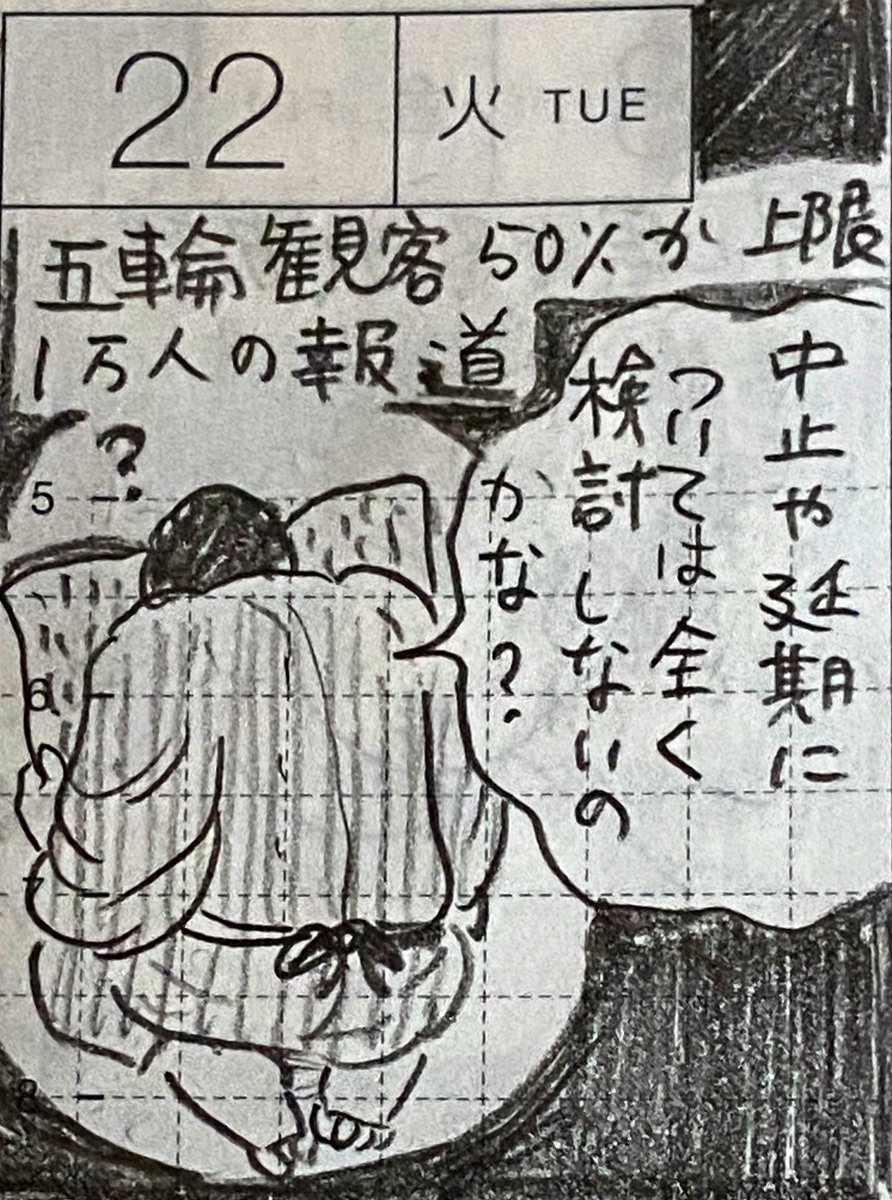 22
火 TUE
五輪観客50%か上限
1万人の報道
中止や延期に
ついては全く
検討しないの
かな?
?
5
6
7
8